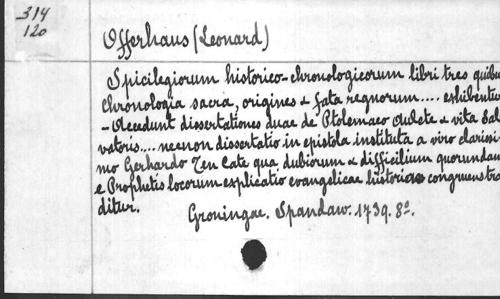 314
120
Offerhaus (Leonard)
Spicilegiorum historico-chronologicorum libri tres quibus
chronologia sacra, origines & fata regnorum.... exhibentur
- Accedunt dissertationes duae de Ptolemaeo Aulete & vita Sal
vatoris.... necnon dissertatio in epistola instituta a viro clarissi-
mo Gerhardo Ten Cate qua dubiorum & difficilium quorundam
e Prophetis locorum explicatio evangelicae historiae congruens tra
ditur.
Groningae. Spandaw. 1739. 8º.